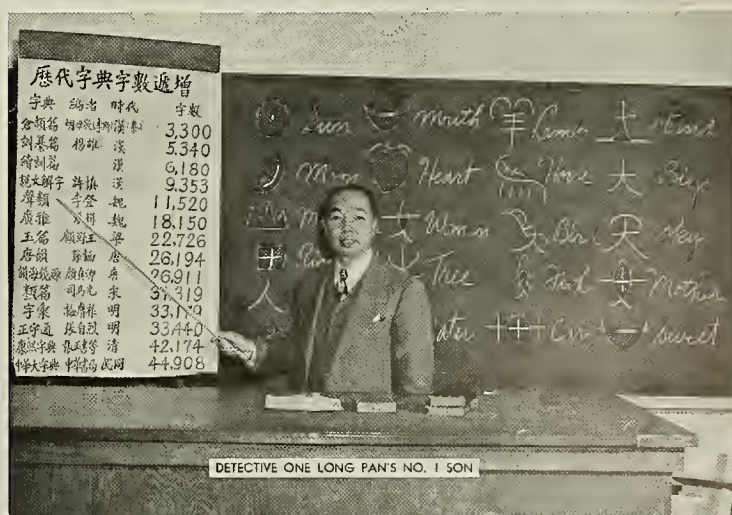 歷代字典字數遞增
字典 編者 時代 字數
倉頡篇 漢 3,300
訓纂篇 揚雄 漢 5,340
續訓篇 漢 6,180
說文解字 許慎 漢 9,353
聲類 李登 魏 11,520
廣雅 張揖 魏 18,150
玉篇 顧野王 梁 22,726
唐韻 孫愐 唐 26,194
韻海鏡源 顏真卿 唐 26,911
類篇 司馬光 宋 31,319
字彙 梅膺祚 明 33,179
正字通 張自烈 明 33,440
康熙字典 張玉書等 清 42,174
中華大字典 中華書局 民國 44,908
Sun Mouth 羊 Lamb East
Moon Heart Horse 大 Big
Woman Bird Sky
Tree Fish Mother
人 Sweet
DETECTIVE ONE LONG PAN'S NO. 1 SON